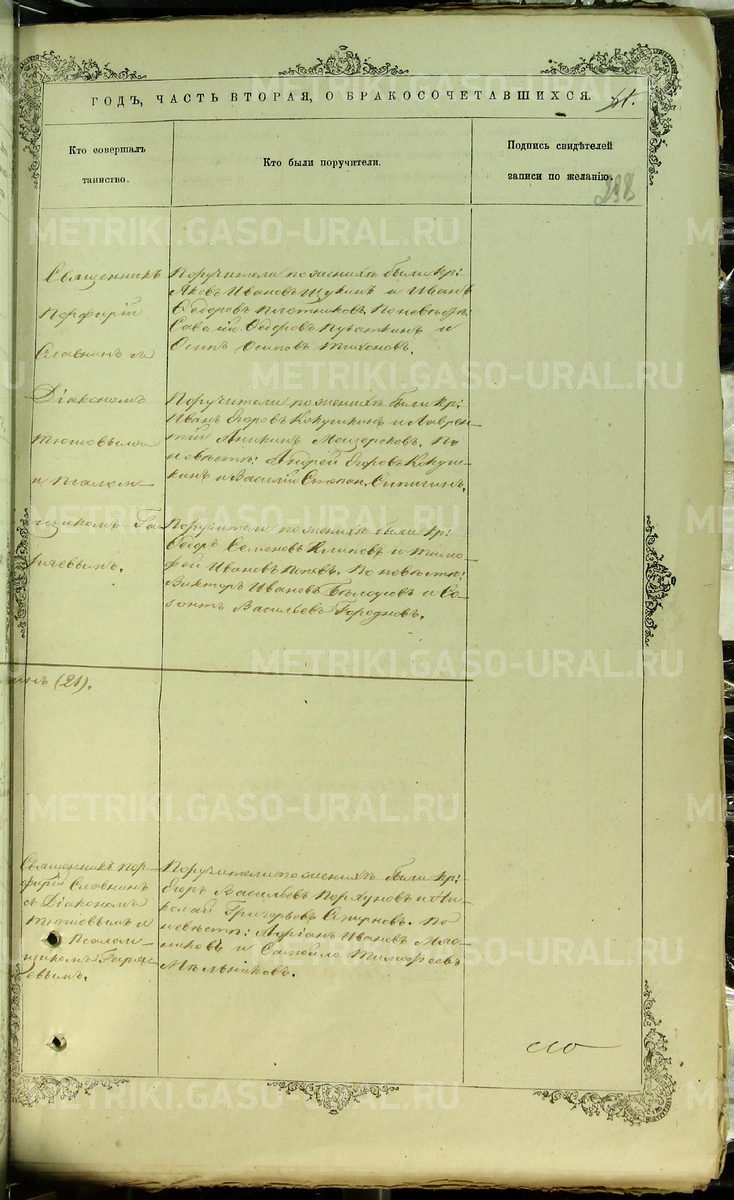 ГОДЪ, ЧАСТЬ ВТОРАЯ, О БРАКОСОЧЕТАВШИХСЯ.
Кто совершалъ
таинство.
Кто были поручители.
Подпись свидѣтелей
записи по желанію.
298
Священникъ
Порфирій
Славнинъ съ
Діакономъ
и Псалом-
щикомъ
Поручители по женихѣ были кр:
Яковъ Ивановъ Щукинъ и Иванъ
Ѳедоровъ Плотниковъ. По невѣстѣ:
Савелій Ѳедоровъ Пузаткинъ и
Осипъ Осиповъ Тихоновъ.
Поручители по женихѣ были кр:
Иванъ Егоровъ Кокушкинъ и Лаврен-
тій Аникинъ. По
невѣстѣ: Андрей Егоровъ Кокуш-
кинъ и Василій Степан. Сипигинъ.
Поручители по женихѣ были кр:
Ѳедоръ Семеновъ Климовъ и Тимо-
фей Ивановъ Поповъ. По невѣстѣ:
Викторъ Ивановъ и Со-
зонтъ Васильевъ Городновъ.
(21).
Священникъ Пор-
фирій Славнинъ
съ Діакономъ
и
Псалом-
щикомъ
Поручители по женихѣ были кр:
Егоръ Васильевъ и Ни-
колай Григорьевъ Смирновъ. По
невѣстѣ: Адріанъ Ивановъ
и Самойло Тимофеевъ
Мѣльниковъ.
METRIKI.GASO-URAL.RU